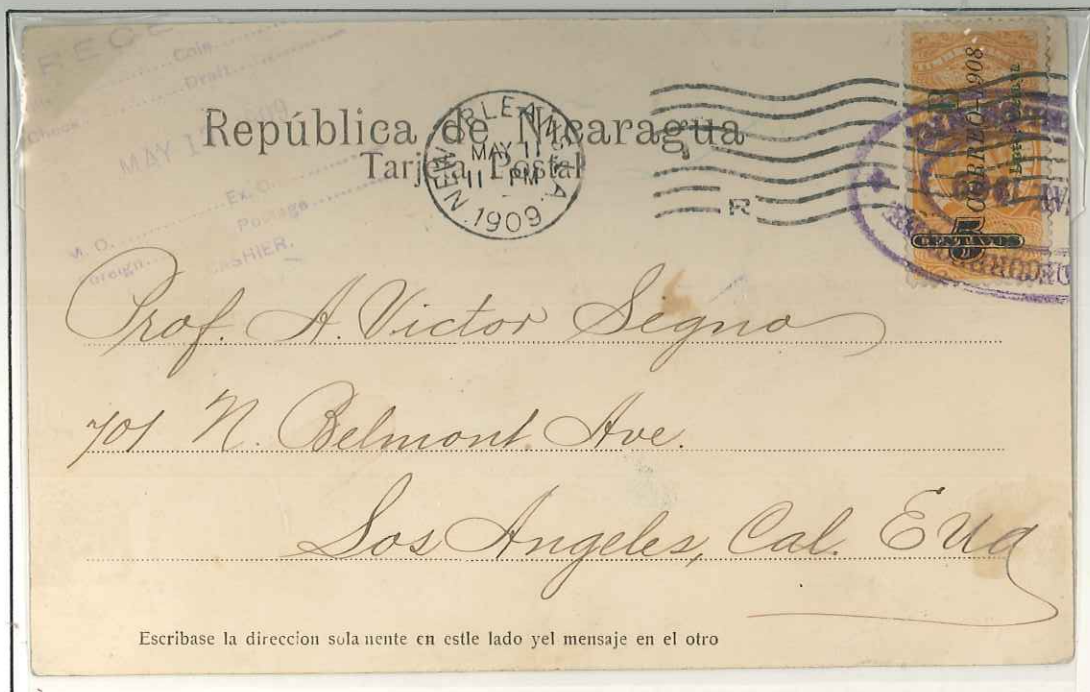 Coin
Draft
Check
MAY 1
Ex. O.
M. O.
Postage
Foreign
CASHIER.
República de Nicaragua
Tarjeta Postal
NEW ORLEANS, LA.
MAY 11
11 PM
1909
R
B
CORREO-1908
5
CENTIVOS
Prof. A. Victor Segno
701 N. Belmont Ave.
Los Angeles, Cal. EUA
Escribase la direccion sola nente en estle lado yel mensaje en el otro